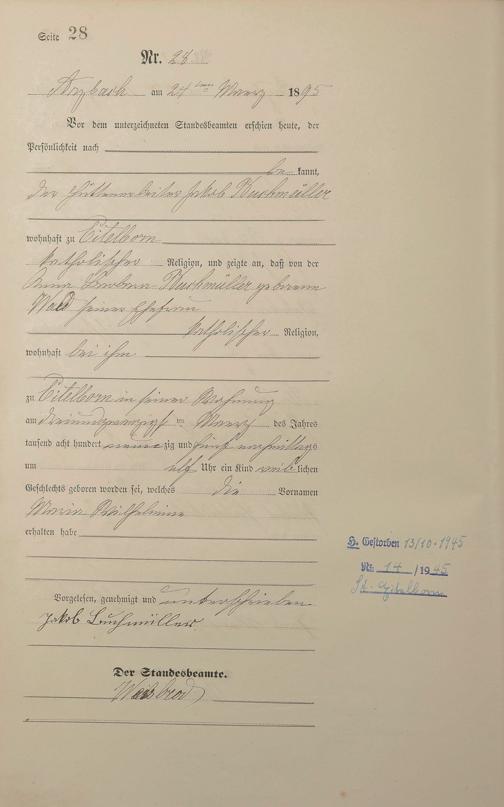 Seite 28
Nr. 28
Arzbach am 24ten Maerz 1895
Vor dem unterzeichneten Standesbeamten erschien heute, der
Persönlichkeit nach
be kannt,
der Hüttenarbeiter Jakob Buchmüller
wohnhaft zu Eitelborn
katholischer Religion, und zeigte an, daß von der
Anna Barbara Buchmüller geborenen
seiner Ehefrau
katholischer Religion,
wohnhaft bei ihm
zu Eitelborn in seiner Wohnung
am dreiundzwanzigsten Maerz des Jahres
tausend acht hundert neunzig und fünf vormittags
um elf Uhr ein Kind weiblichen
Geschlechts geboren worden sei, welches die Vornamen
Maria Wilhelmine
erhalten habe
H. Gestorben 13/10.1945
Nr. 14/1945
St. Eitelborn
Vorgelesen, genehmigt und unterschrieben
Jakob Buchmüller
Der Standesbeamte.
Weisbrod